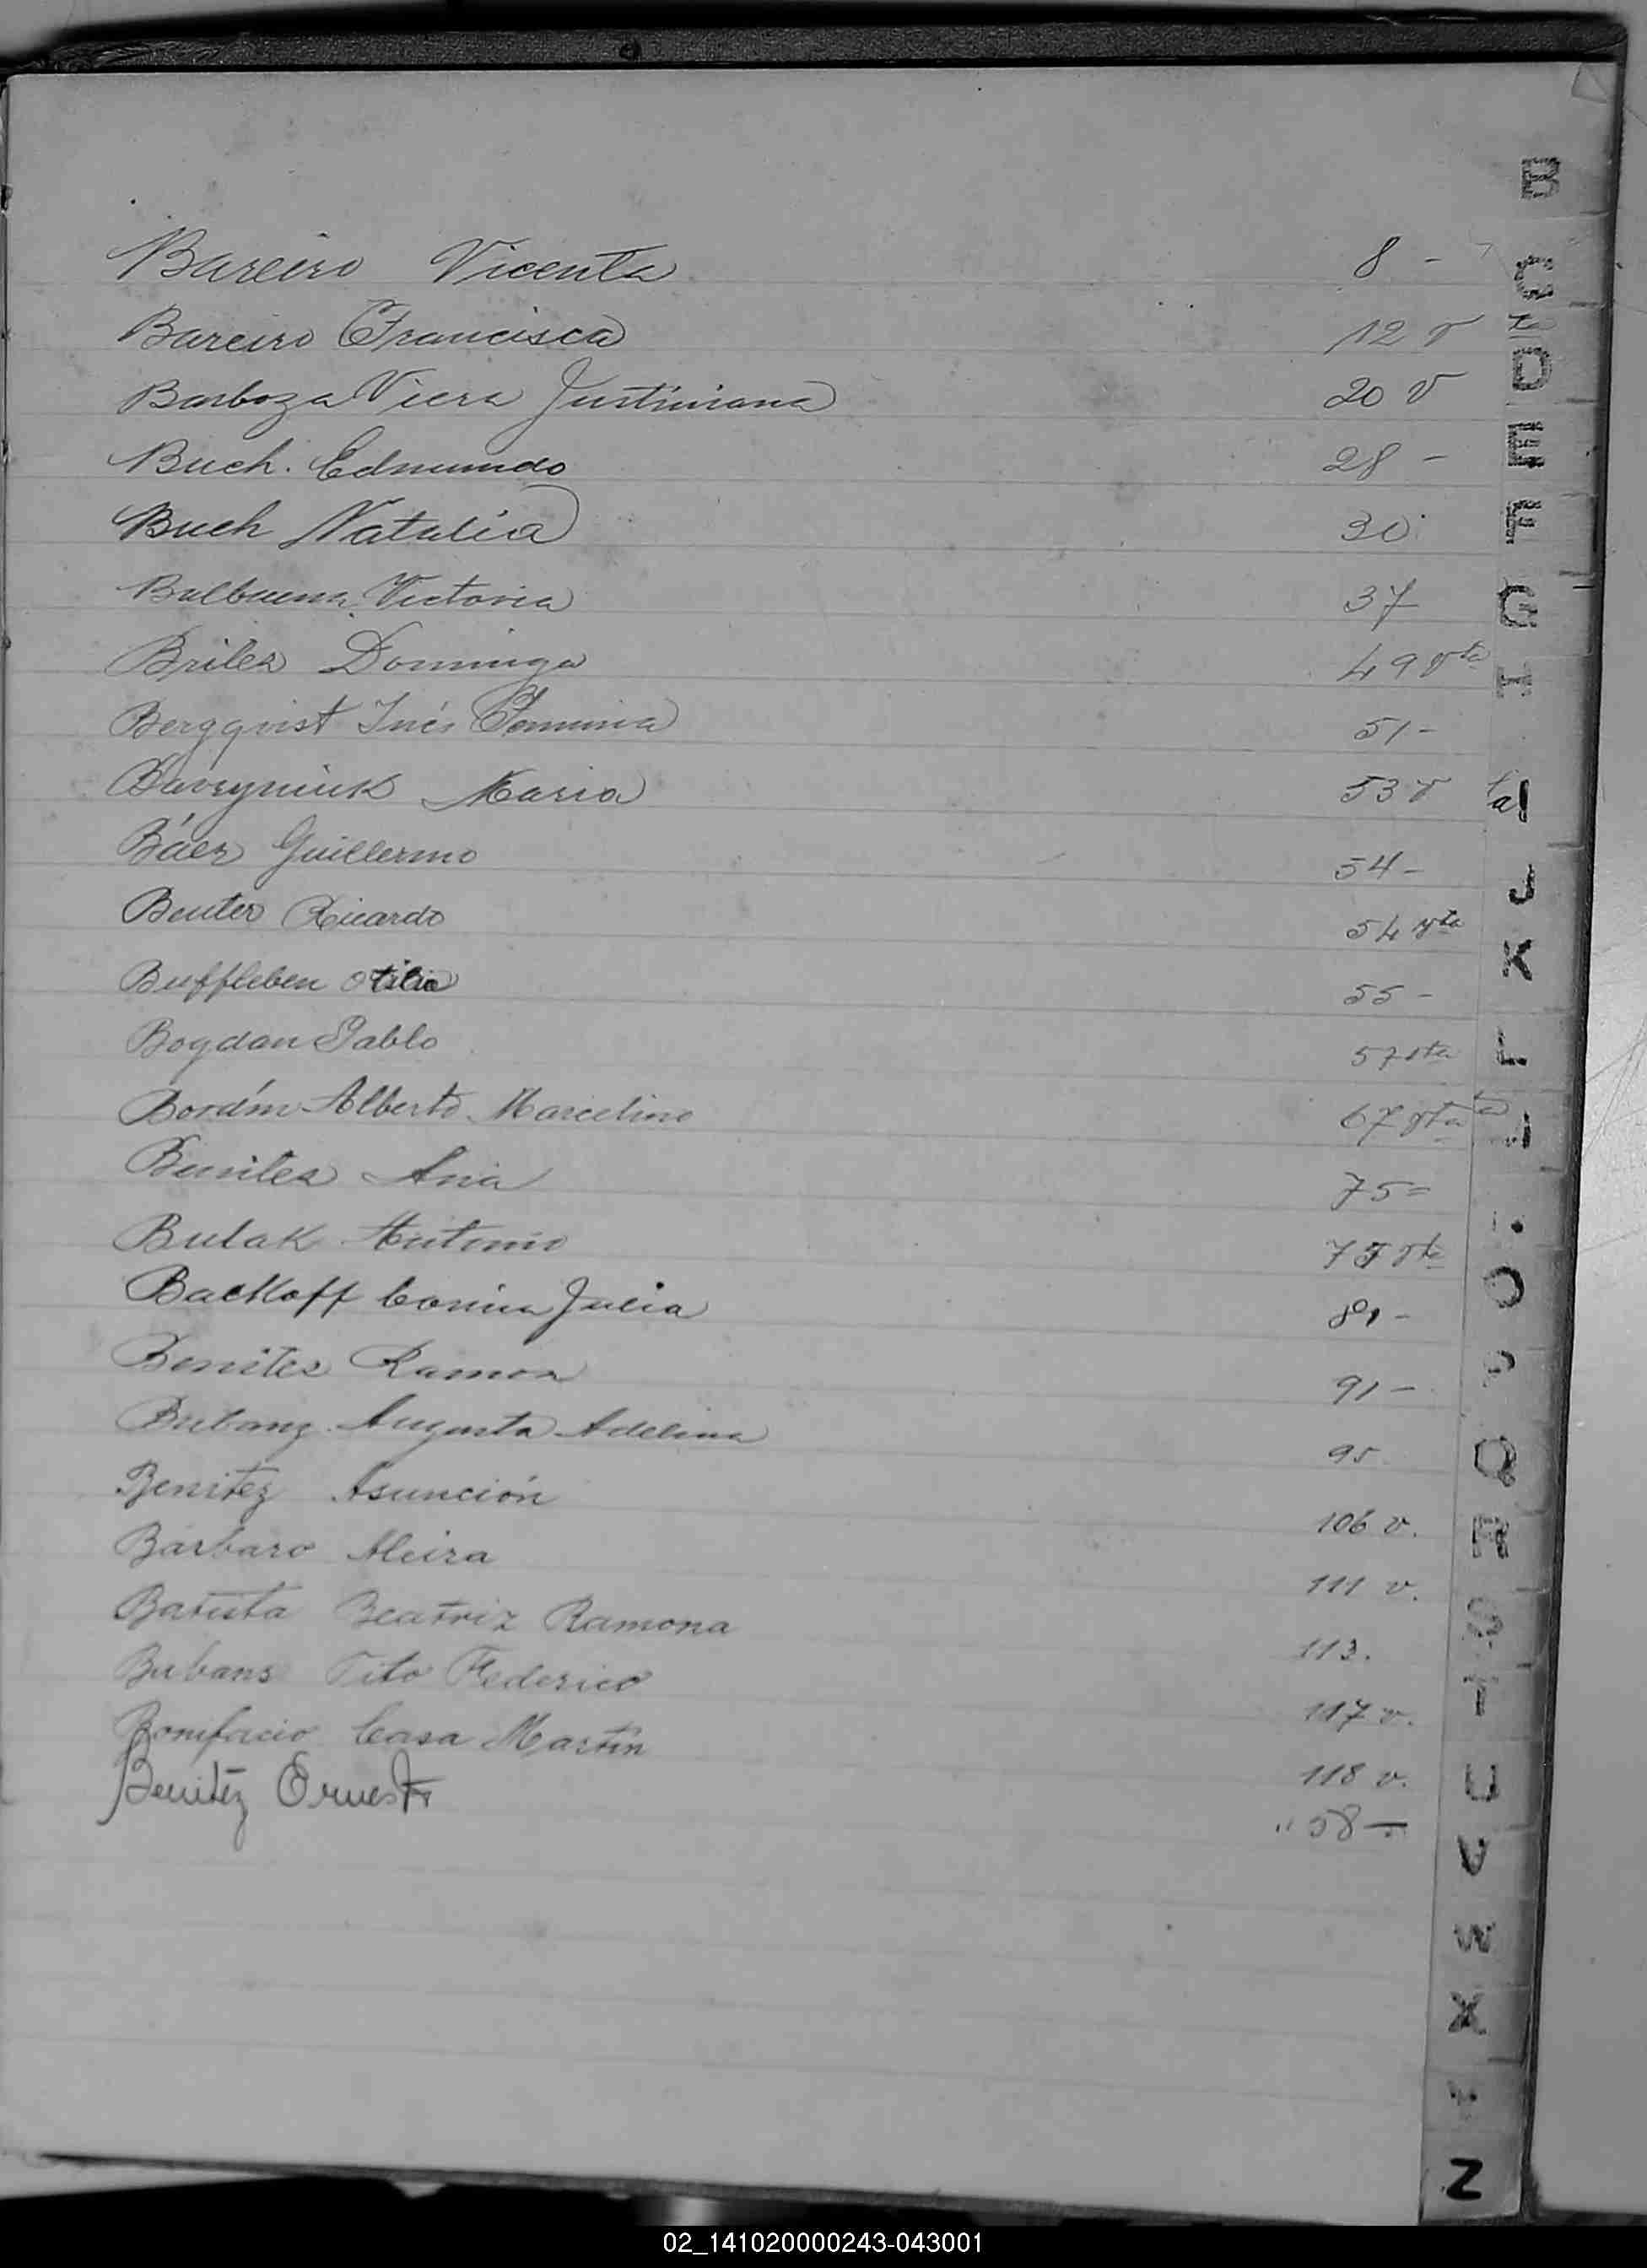 B
Bareiro Vicenta 8 -
C
Bareiro Francisca 12 v ta
D
Barboza Viera Justiniana 20 v
E
Buch. Edmundo 28 -
F
Buch Natalia 30
G
Balbuena Victoria 37
H
Brites Dominga 49 vta
Bergqvist Inés Gemmina 51 -
I
Bavryniuk Maria 53 v ta
Báez Guillermo 54 -
J
Beuter Ricardo 54 vta
K
Buffleben Otilia 55 -
L
Bogdan Pablo 57 vta
Bordín Alberto Marcelino 67 vta
Benites Ana 75 =
Bulak Antonio 75 vta
O
Backoff Corina Julia 81 -
P
Benites Ramon 91 -
Q
Augusta Adelina 95
R
Benitez Asunción 106 v.
Barbaro Alcira 111 v.
S
Batista Beatriz Ramona 113.
T
Tito Federico 117 v.
Bonifacio Casa Martín 118 v.
U
Benitez Ernesto " 58 -
V
W
X
Y
Z
02_141020000243-043001